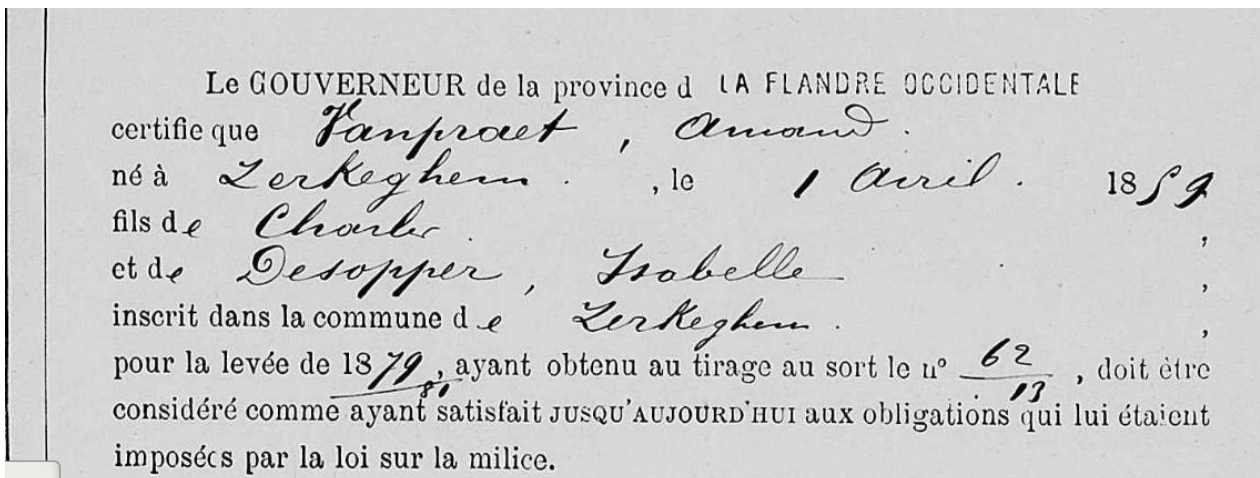 Le GOUVERNEUR de la province d LA FLANDRE OCCIDENTALE
certifie que Vanpraet, Amand.
né à Zerkeghem. , le 1 Avril. 1859
fils de Charles. ,
et de Desopper, Isabelle ,
inscrit dans la commune de Zerkeghem. ,
pour la levée de 1879, ayant obtenu au tirage au sort le n° 62, doit être
81 13
considéré comme ayant satisfait JUSQU'AUJOURD'HUI aux obligations qui lui étaient
imposées par la loi sur la milice.